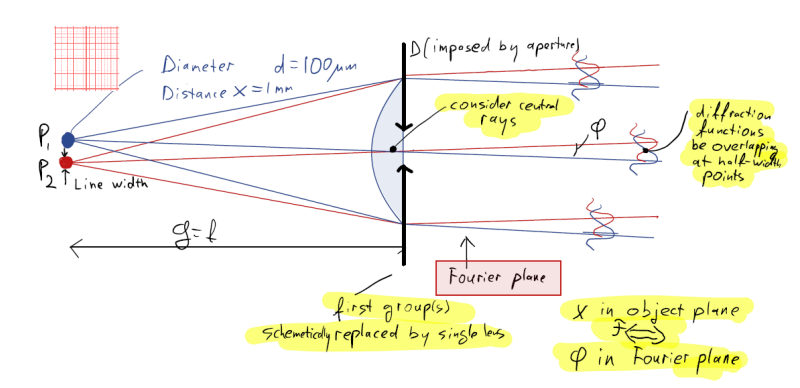 D (imposed by aperture)
Diameter d=100µm
Distance x=1mm
consider central
rays
P1
P2
Line width
φ
diffraction
functions
be overlapping
at half-width
points
g=f
Fourier plane
first group(s)
schemetically replaced by single lens
x in object plane
F
φ in Fourier plane